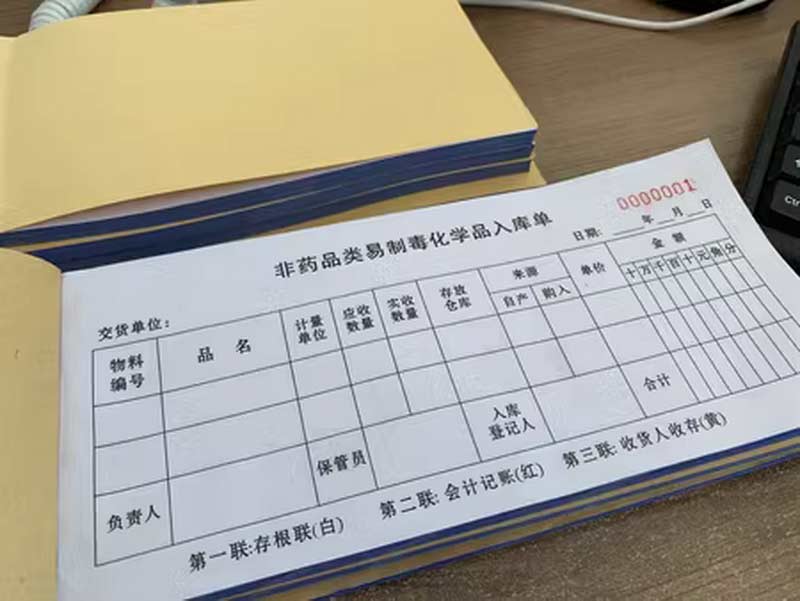 0000001
非药品类易制毒化学品入库单
日期: 年 月 日
交货单位:
物料编号 品 名 计量单位 应收数量 实收数量 存放仓库 来源 单价 金 额
自产 购入 十万千百十元角分
合计
负责人 保管员 入库登记人
第一联:存根联(白) 第二联:会计记账(红) 第三联:收货人收存(黄)
Ctr